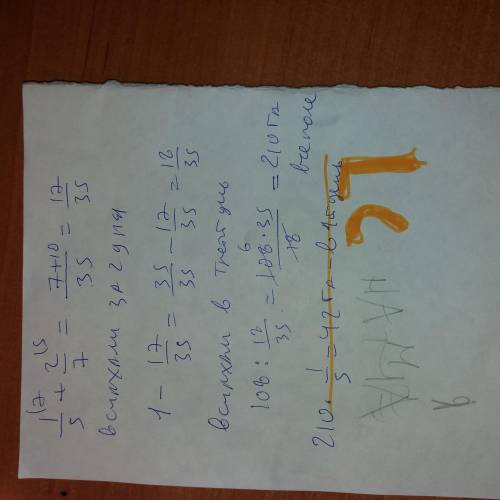 1/5 + 2/7 = (7+10)/35 = 17/35
вспахали за 2 дня
1 - 17/35 = 35/35 - 17/35 = 18/35
вспахали в третий день
108 : 18/35 = (108·35)/18 = 210 га
все поле
210 · 1/5 = 42 га - в 1й день